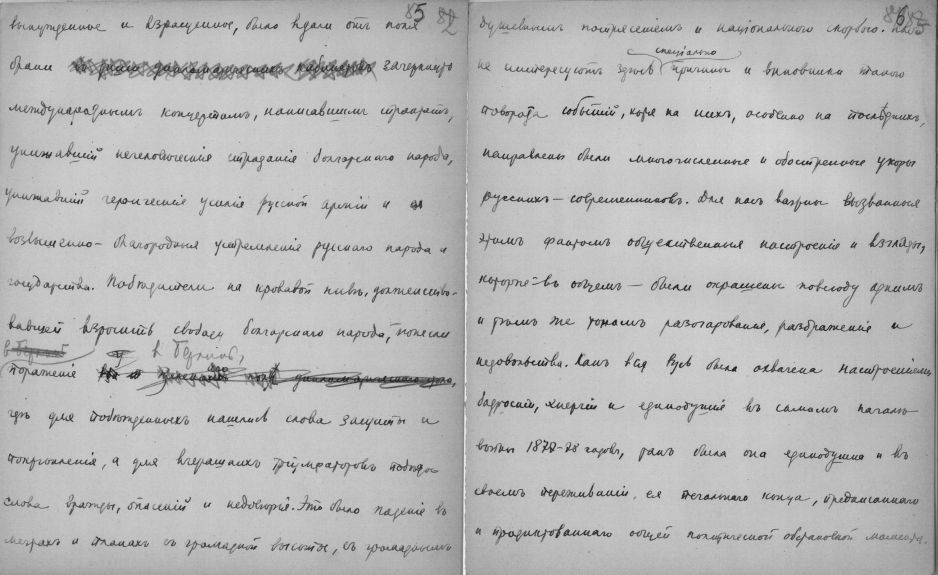 85 82
вынужденное и взращенное, было вдали отъ поля
брани зачеркнуто
международнымъ концертомъ, написавшимъ трактатъ,
унижавшій нечеловѣческія страданія болгарскаго народа,
унижавшій героическія усилія русской арміи и
возвышенно-благородныя устремленія русскаго народа и
государства. Побѣдители на кровавой нивѣ, долженство-
вавшей взростить свободу болгарскаго народа, понесли
в Берлинѣ,
пораженіе
гдѣ для побѣжденныхъ нашлись слова защиты и
покровленія, а для вчерашнихъ тріумфаторовъ побѣды
слова вражды, опасеній и недовѣрія. Это было паденіе въ
мечтахъ и планахъ съ громадной высоты, съ громаднымъ
86 83
душевнымъ потрясеніемъ и національною скорбью. Насъ
спеціально
не интересуютъ здѣсь причины и виновники такого
поворота событій, хотя на нихъ, особенно на послѣднихъ,
направлены были многочисленные и обостренные укоры
русскихъ - современниковъ. Для насъ важны вызванныя
этимъ фактомъ общественныя настроенія и взгляды,
которые - въ общемъ - были окрашены повсюду однимъ
и тѣмъ же тономъ разочарованія, раздраженія и
недовольства. Какъ вся Русь была охвачена настроеніемъ
бодрости, энергіи и единодушія въ самомъ началѣ
войны 1877-78 годовъ, такъ была она единодушна и въ
своемъ переживаніи ея печальнаго конца, предписаннаго
и продиктованнаго общей политической обстановкой момента.